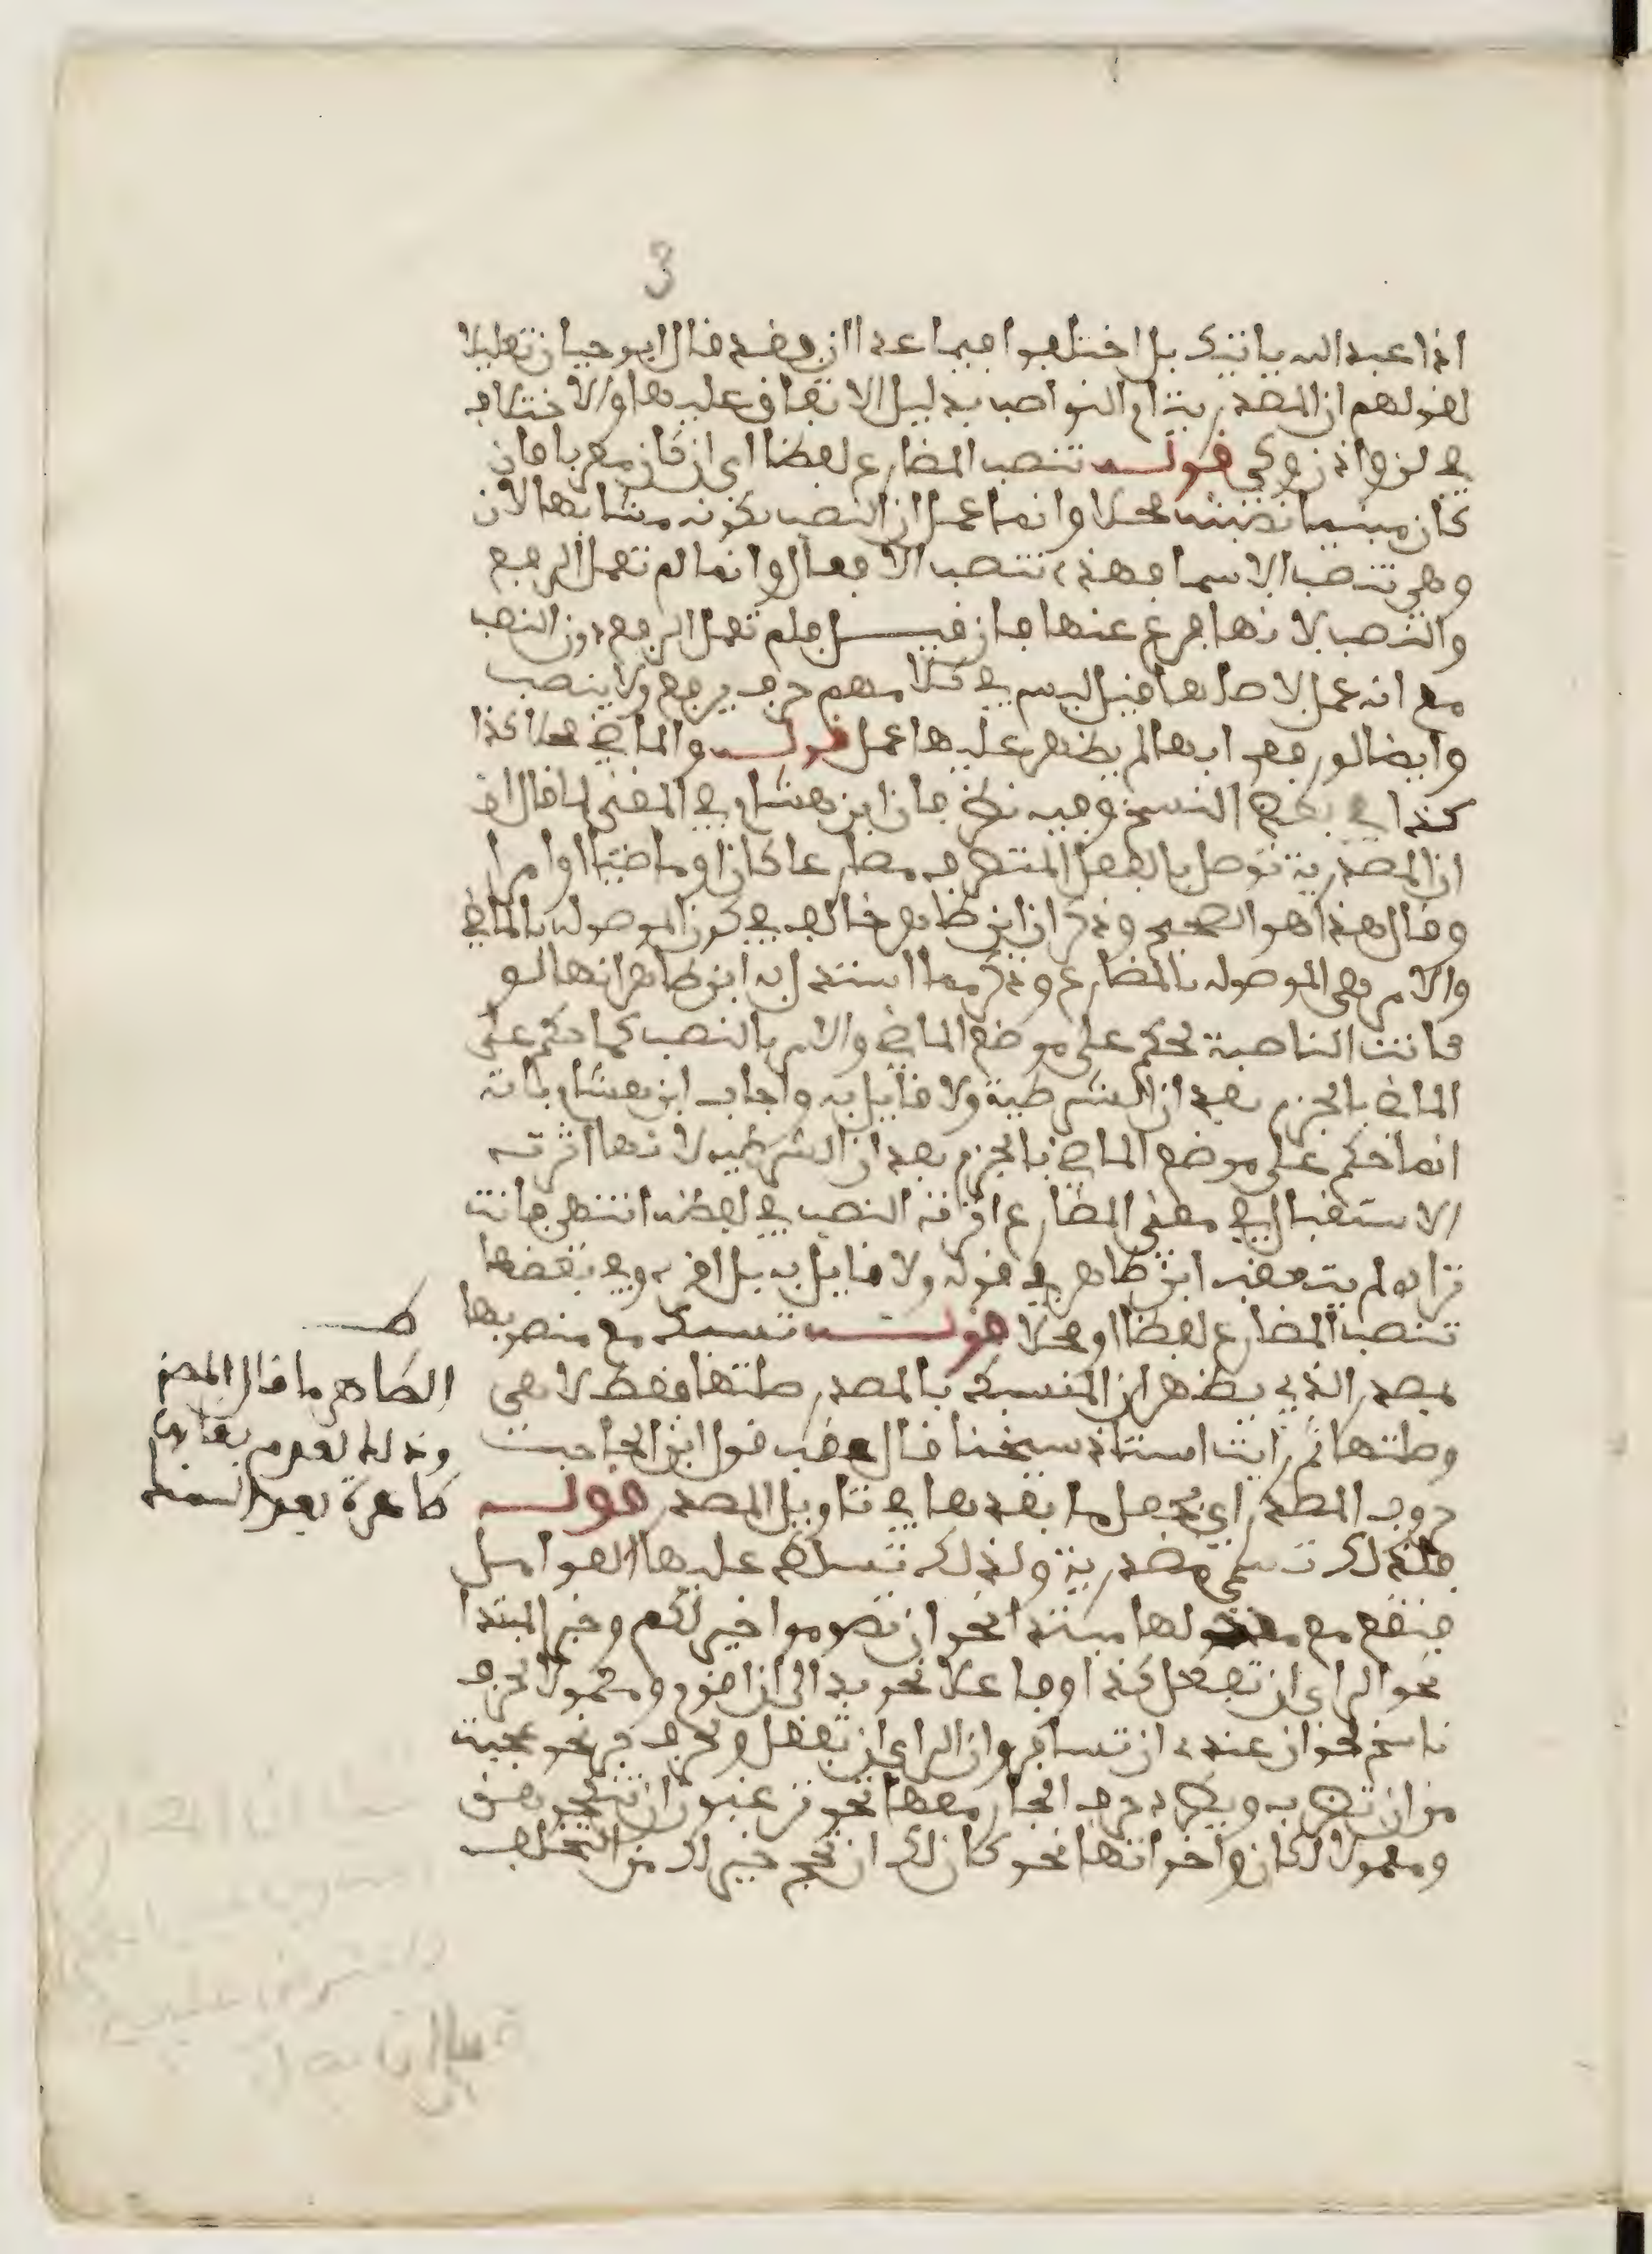 3
اذا عبد الله ياتيك بل اختلفوا فيما عدا ان وقد قال ابو حيان تعليلا
لقولهم ان المصدرية ام النواصب بدليل الاتفاق عليها والاختلاف
في لن واذن وكي قوله تنصب المضارع لفظا اي ان كان معربا فان
كان مبنيا نصبته محلا وانما عمل ان النصب لكونه مشابها لان
وهي تنصب الاسما فهذه تنصب الافعال وانما لم تعمل الرفع
والنصب لانها فرع عنها فان قيل فلم تعمل الرفع دون النصب
مع انه عمل لاصلها قيل ليس في كلامهم حرف يرفع ولا ينصب
وايضا لو رفع ابها لم يظهر عليها عمل قوله والماضي محلا كذا
كذا في بعض النسخ وفيه نظر فان ابن هشام في المغني لما قال ان
ان المصدرية توصل بالفعل المتصرف مضارعا كان او ماضيا او امرا
وقال هذا هو الصحيح وذكر ان ابن طاهر خالف في كون الموصولة بالماضي
والامر هي الموصولة بالمضارع وذكر مما استدل به ابن طاهر انها لو
كانت الناصبة لحكم على موضع الماضي والامر بالنصب كما حكم على
الماضي بالجزم بعد ان الشرطية ولا قايل به واجاب ابن هشام بانه
انما حكم على موضع الماضي بالجزم بعد ان الشرطية لانها اثرت
الاستقبال في معنى المضارع اثرت النصب في لفظه انتهى فانت
تراه لم يتعقب ابن طاهر في قوله ولا قايل به بل اقره وفي بعضها
تنصب المضارع لفظا او محلا قوله تسبك مع منصوبها
بمصدر الذي يظهر ان المنسبك بالمصدر صلتها فقط لا هي
وصلتها ثم رايت استاذ شيخنا قال عقب قول ابن الحاجب
حروف المصدر اي تجعل ما بعدها في تاويل المصدر قوله
فلذلك تسمى مصدرية ولذلك تسلط عليها العوامل
فتقع مع معمولها مبتدا نحو ان تصوموا خير لكم وخبر المبتدا
نحو الراي ان تفعل كذا وفاعلا نحو بدا لي ان اقوم ومعمولا لحرف
ناسخ نحو ان عندي ان تسافر وان الراي ان تفعل ولحرف جر نحو عجبت
من ان تضربه ويطرد حرف الجار معها نحو ترغبون ان تنكحوهن
ومعمولا لكان واخواتها نحو كان لك ان تحج خير لك من التخلف
الظاهر ما قال المصنف